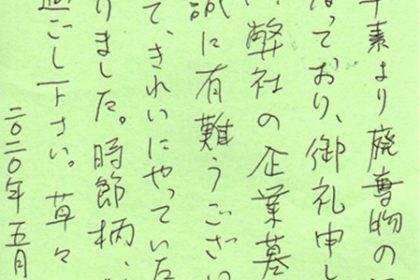 平素より廃棄物の
なっており、御礼申し
弊社の企業墓
誠に有難うござい
て、きれいにやっていた
りました。時節柄、
過ごし下さい。草々
二〇二〇年五月